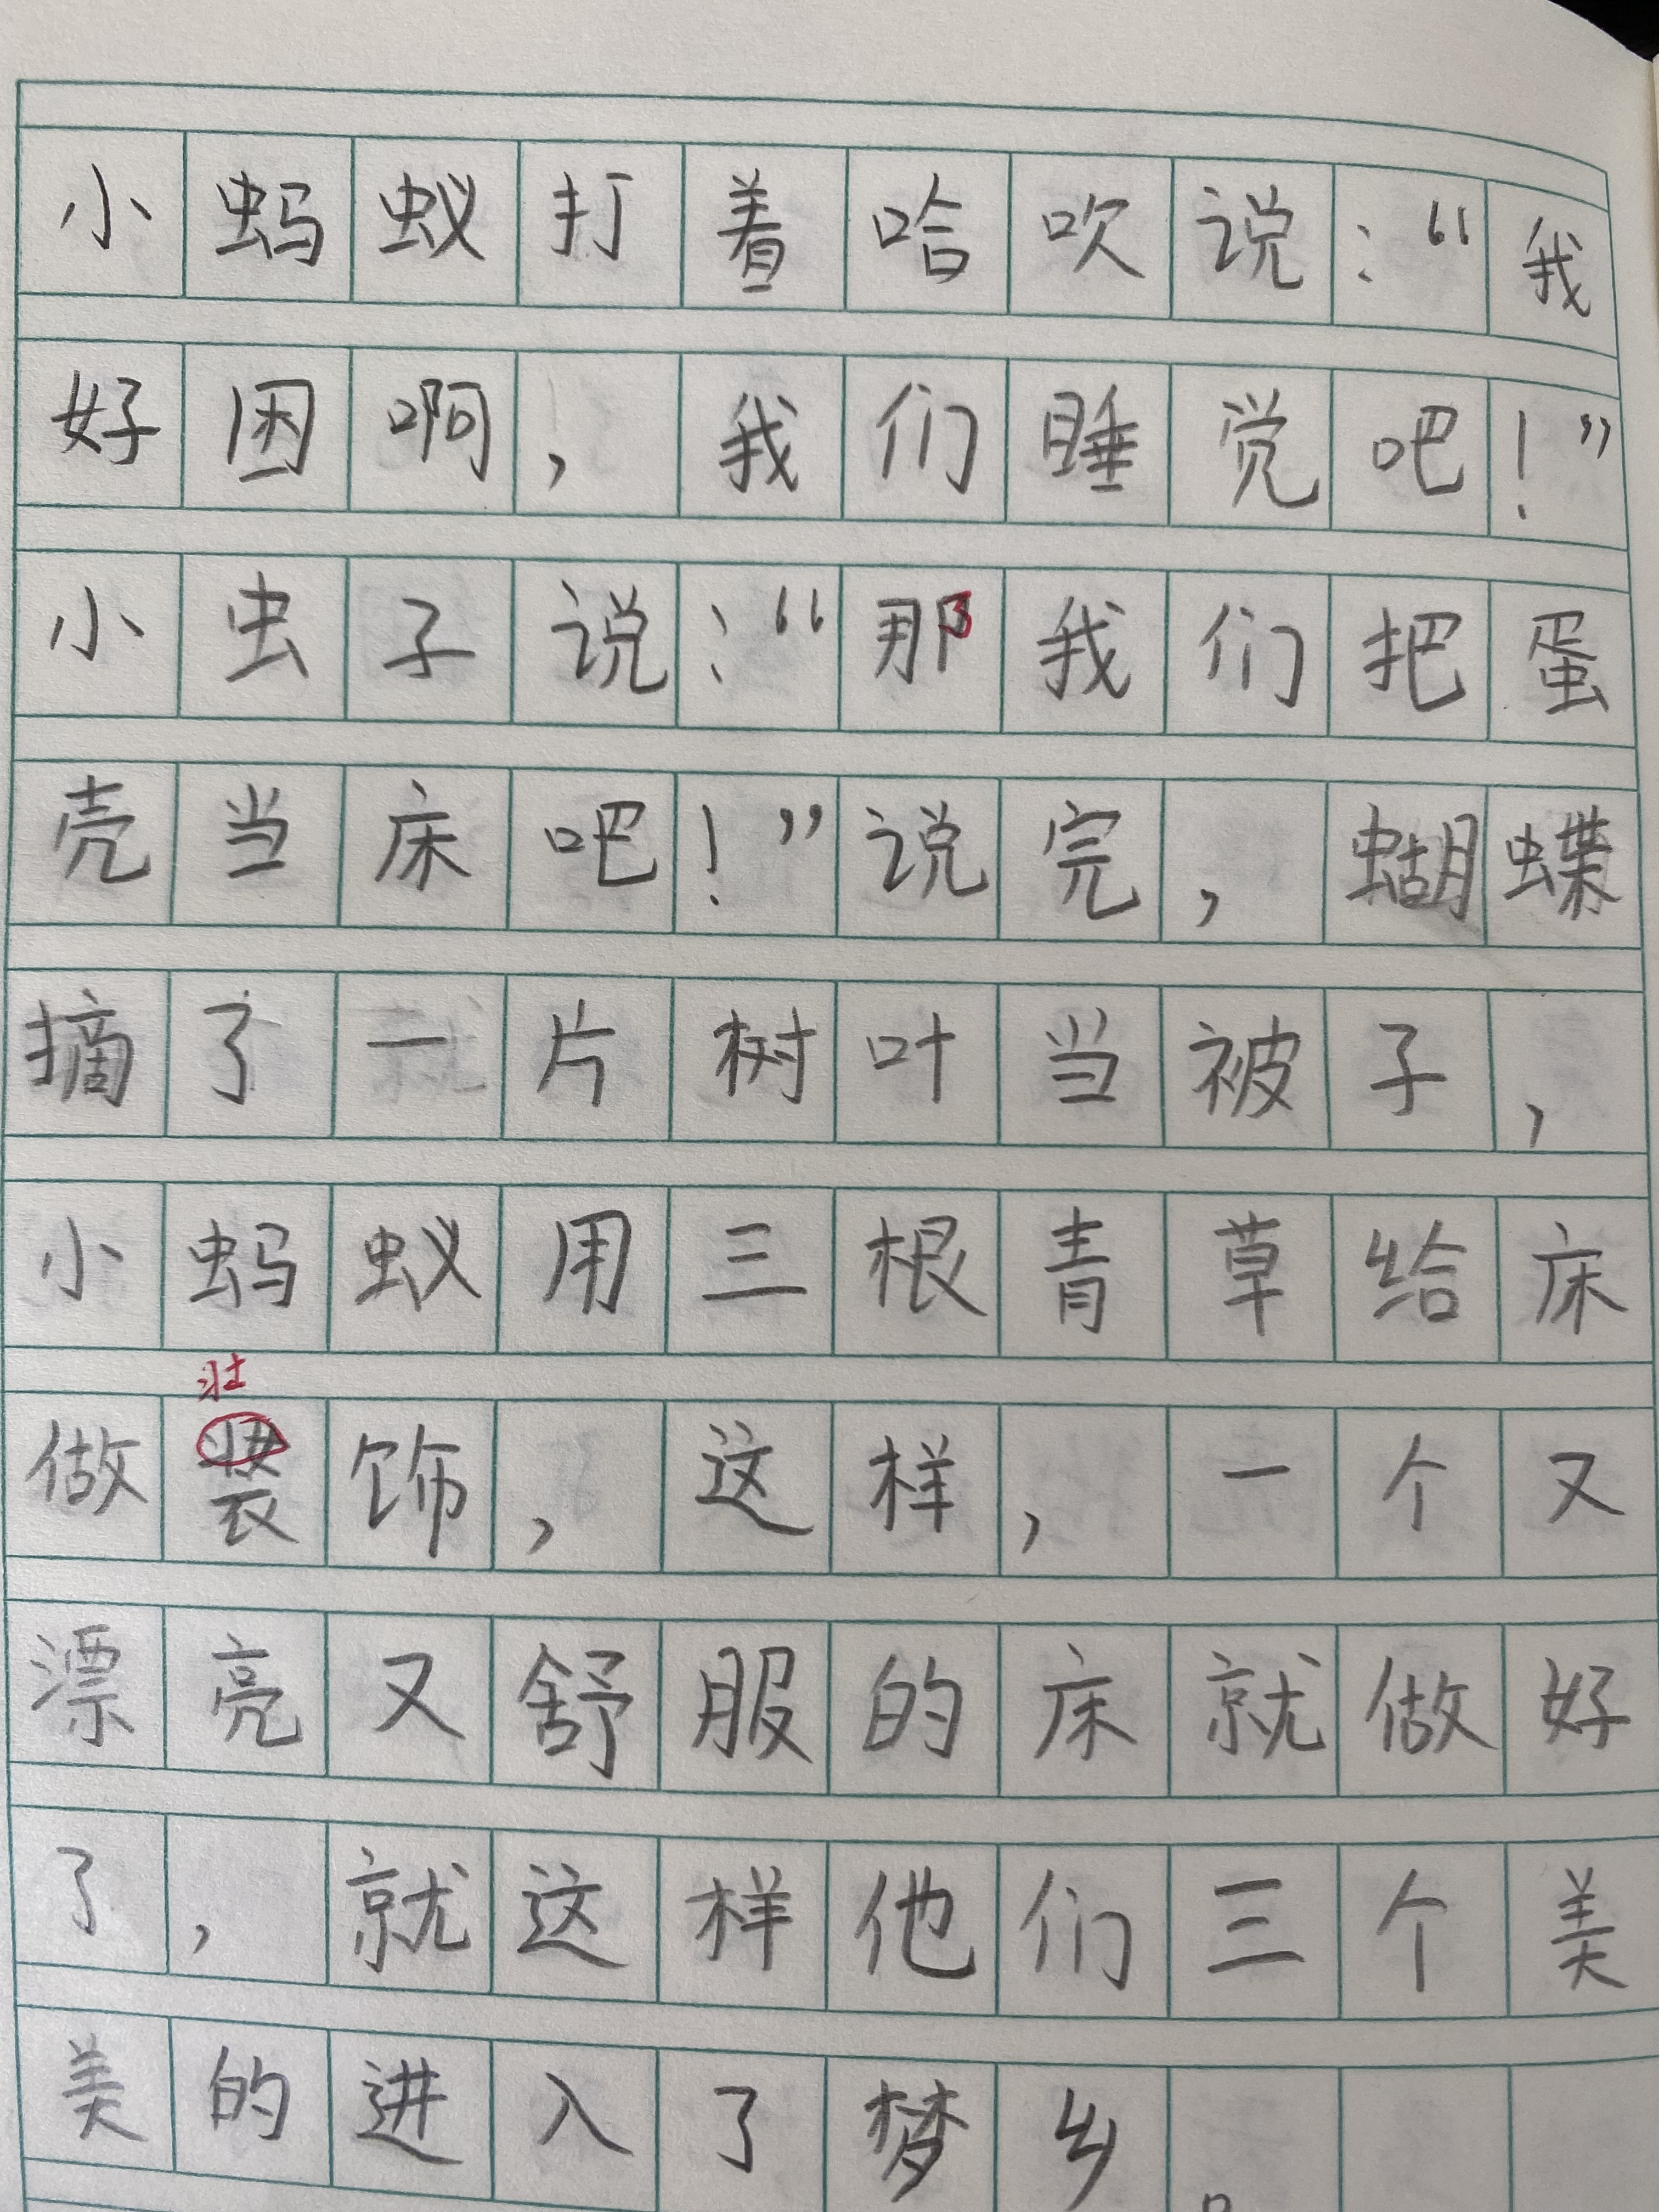 小蚂蚁打着哈吹说：“我
好困啊，我们睡觉吧！”
小虫子说：“那我们把蛋
壳当床吧！”说完，蝴蝶
摘了一片树叶当被子，
小蚂蚁用三根青草给床
壮
做装饰，这样，一个又
漂亮又舒服的床就做好
了，就这样他们三个美
美的进入了梦乡。